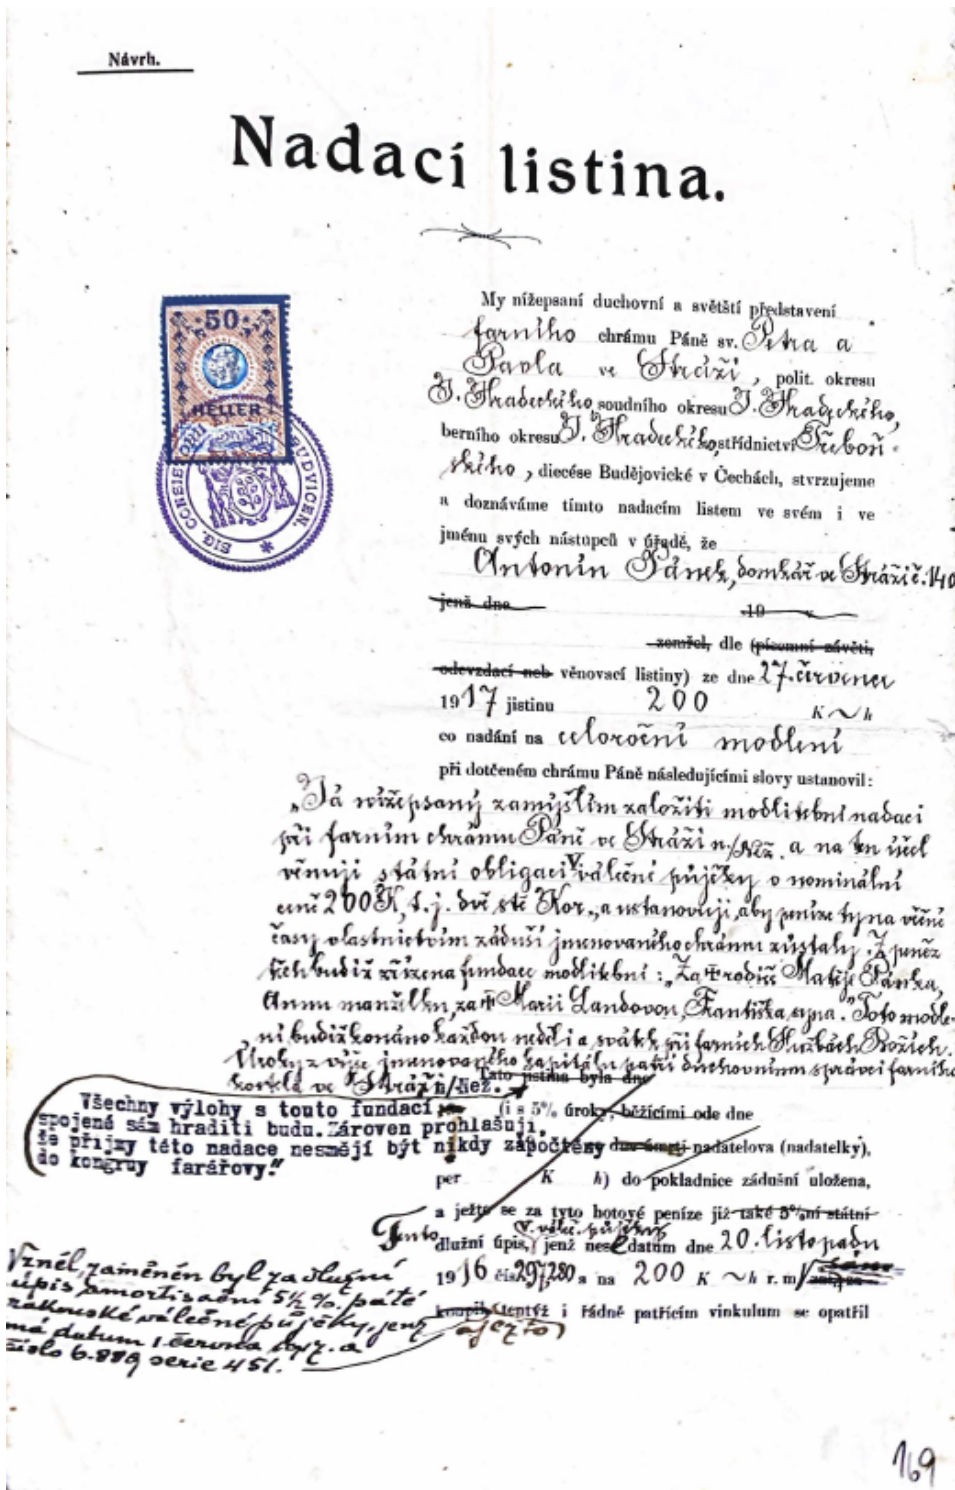 Návrh.
Nadací listina.
50
HELLER
SIG. CONSIST BUDVICEN.
My nížepsaní duchovní a světští představení
farního chrámu Páně sv. Petra a
Pavla ve Stráži, polit. okresu
J. Hradeckého soudního okresu J. Hradeckého,
berního okresu J. Hradeckého, střídnictví Třeboň-
ského, diecése Budějovické v Čechách, stvrzujeme
a doznáváme tímto nadacím listem ve svém i ve
jménu svých nástupců v úřadě, že
Antonín Pánek, domkář ve Stráži č. 140
jenž dne 19
zemřel, dle (písemní závěti,
odevzdací neb věnovací listiny) ze dne 27. července
1917 jistinu 200 K ~ h
co nadání na celoroční modlení
při dotčeném chrámu Páně následujícími slovy ustanovil:
„Já nížepsaný zamýšlím založiti modlitební nadaci
při farním chrámu Páně ve Stráži n./Než. a na ten účel
věnuji státní obligaci V. válečné půjčky o nominální
ceně 200 K, t. j. dvě stě Kor., a ustanovuji, aby peníze ty na věčné
časy vlastnictvím záduší jmenovaného chrámu zůstaly. Z peněz
těch budiž zřízena fundace modlitební: „Za † rodiče Matěje Pánka,
Annu manželku, za † Marii Landovou, Františka, syna." Toto modle-
ní budiž konáno každou neděli a svátek při farních Službách Božích.
Úroky z výše jmenovaného kapitálu patří duchovnímu správci farního
kostela ve Stráži n/Než. Tato jistina byla dne
Všechny výlohy s touto fundací (i s 5% úroky, běžícími ode dne
spojené sám hraditi budu. Zároven prohlašuji,
že příjmy této nadace nesmějí být nikdy započteny dne úmrtí nadatelova (nadatelky),
do kongruy farářovy."
per K h) do pokladnice zádušní uložena,
a ježto se za tyto hotové peníze již také 5%ní státní
Tento V. váleč. půjčky
dlužní úpis, jenž nesl datum dne 20. listopadu
1916 čís 297280 a na 200 K ~ h r. m.
koupil, tentýž i řádně patřícím vinkulum se opatřil
a ježto
Vzněl, zaměněn byl za dlužní
úpis amortisační 5½%. páté
rakouské válečné půjčky, jenž
má datum 1. června 1917. a
číslo 6.889 serie 451.
169